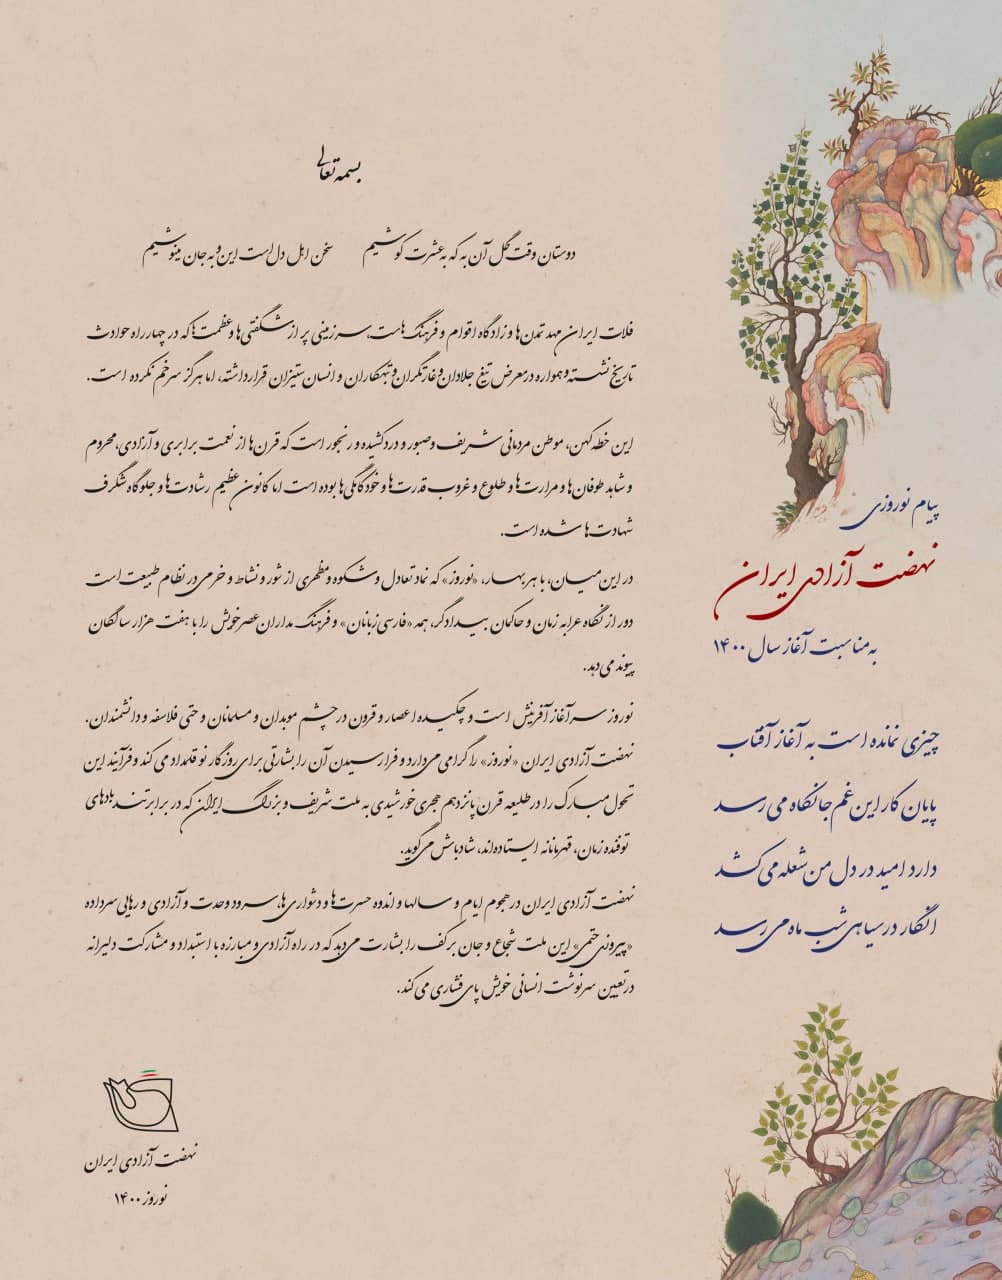 بسمه تعالی
دوستان وقت گل آن به که به عشرت کوشیم سخن اهل دل است این و به جان مینوشیم
فلات ایران مهد تمدن‌ها و زادگاه اقوام و فرهنگ‌هاست، سرزمینی پر از شگفتی‌ها و عظمت‌ها که در چهارراه حوادث
تاریخ نشسته و همواره در معرض تیغ جلادان و غارتگران و تبهکاران و انسان ستیزان قرار داشته، اما هرگز سر خم نکرده است.
این خطه کهن، موطن مردمانی شریف و صبور و درد کشیده و رنجور است که قرن‌ها از نعمت برابری و آزادی، محروم
و شاهد طوفان‌ها و مرارت‌ها و طلوع و غروب قدرت‌ها و خودکامگی‌ها بوده است اما کانون عظیم رشادت‌ها و جلوگاه شگرف
شهادت‌ها شده است.
در این میان، با هر بهار، «نوروز» که نماد تعادل و شکوه و مظهری از شور و نشاط و خرمی در نظام طبیعت است
دور از نگاه عرابه زمان و حاکمان بیدادگر، همه «فارسی زبانان» و فرهنگ مداران عصر خویش را با هفت هزار سالگان
پیوند می‌دهد.
نوروز سرآغاز آفرینش است و چکیده اعصار و قرون در چشم موبدان و مسلمانان و حتی فلاسفه و دانشمندان.
نهضت آزادی ایران «نوروز» را گرامی می‌دارد و فرا رسیدن آن را بشارتی برای روزگار نو قلمداد می‌کند و فرآیند این
تحول مبارک را در طلیعه قرن پانزدهم هجری خورشیدی به ملت شریف و بزرگ ایران که در برابر تند بادهای
توفنده زمان، قهرمانانه ایستاده‌اند، شادباش می‌گوید.
نهضت آزادی ایران در هجوم ایام و سالها و اندوه حسرت‌ها و دشواری‌ها، سرود وحدت و آزادی و رهایی سر داده
«پیروزی حتمی» این ملت شجاع و جان بر کف را بشارت می‌دهد که در راه آزادی و مبارزه با استبداد و مشارکت دلیرانه
در تعیین سرنوشت انسانی خویش پای فشاری می‌کند.
نهضت آزادی ایران
نوروز ۱۴۰۰
پیام نوروزی
نهضت آزادی ایران
به مناسبت آغاز سال ۱۴۰۰
چیزی نمانده است به آغاز آفتاب
پایان کار این غم جانکاه می رسد
دارد امید در دل من شعله می کشد
انگار در سیاهی شب ماه می رسد